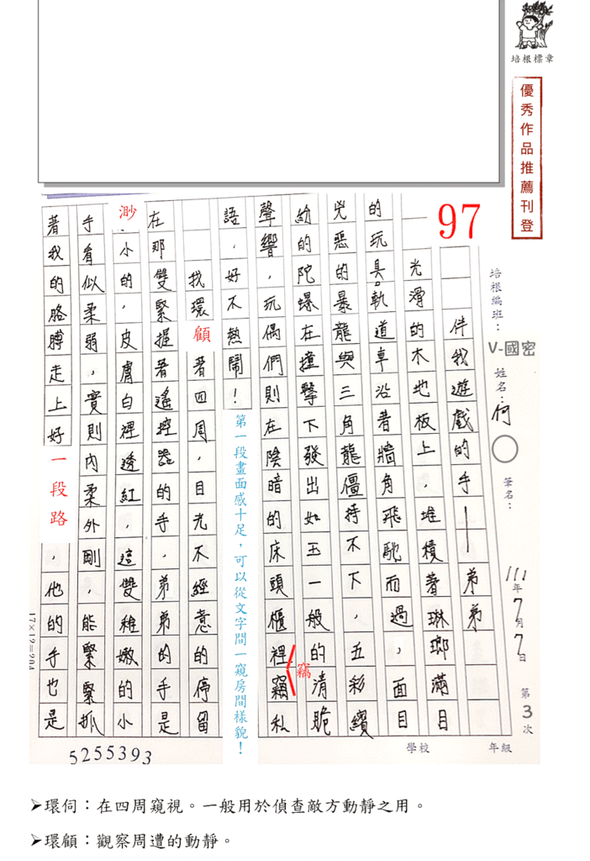 培根標章
優秀作品推薦刊登
97
培根編班：V-國密 姓名：何○ 筆名：
111年7月7日 第3次
學校 年級
伴我遊戲的手——弟弟
光滑的木地板上，堆積著琳瑯滿目
的玩具。軌道車沿著牆角飛馳而過，面目
兇惡的暴龍與三角龍僵持不下，五彩繽
紛的陀螺在撞擊下發出如玉一般的清脆
聲響，玩偶們則在陰暗的床頭櫃裡竊私
竊
語，好不熱鬧！
第一段畫面感十足，可以從文字間一窺房間樣貌！
我環顧著四周，目光不經意的停留
在那雙緊握著遙控器的手，弟弟的手是
渺小的，皮膚白裡透紅，這雙稚嫩的小
手看似柔弱，實則內柔外剛，能緊緊抓
著我的胳膊走上好一段路，他的手也是
17×12=204
5255393
➢環伺：在四周窺視。一般用於偵查敵方動靜之用。
➢環顧：觀察周遭的動靜。